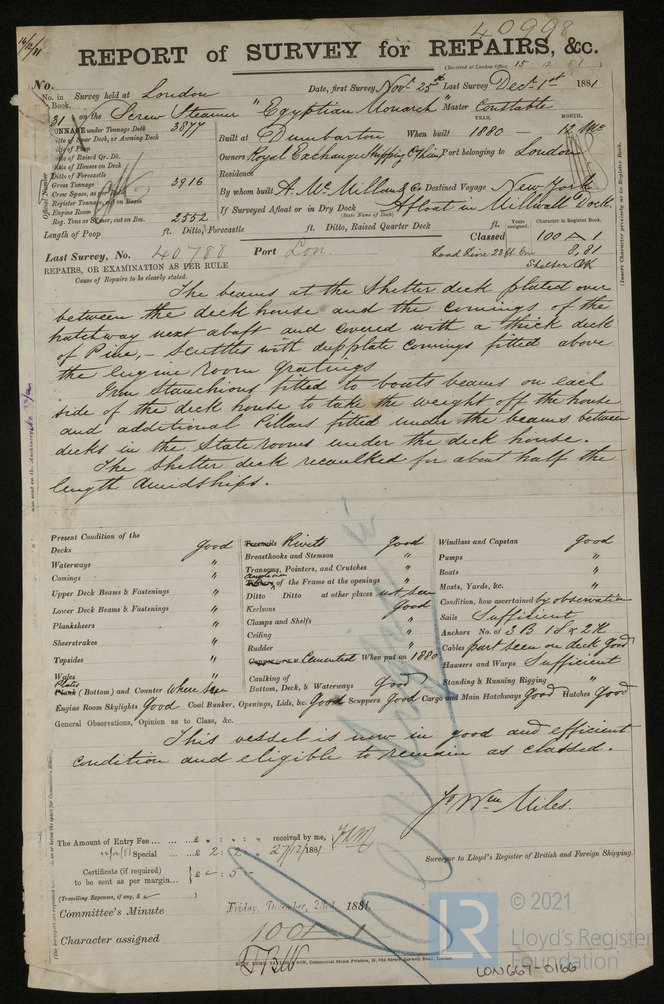 40998
14/12/81
REPORT of SURVEY for REPAIRS, &c.
(Received at London Office, 15 12 81)
No.
No. in Survey held at London Date, first Survey Nov. 25th Last Survey Decr. 1st 1881
Book.
31 on the Screw Steamer "Egyptian Monarch" Master Constable
TONNAGE under Tonnage Deck 3877
Ditto of Spar Deck, or Awning Deck
Ditto of Poop
Ditto of Raised Qr. Dk.
Ditto of Houses on Deck
Ditto of Forecastle
Gross Tonnage 3916
Crew Space, as
Register Tonnage, cut on Beam
Engine Room
Reg. Tons as Steamer, cut on Bm. 2552
YEAR. MONTH.
Built at Dumbarton When built 1880 12 Mo
Owners Royal Exchange Shipping Co Lim. Port belonging to London
Residence
By whom built A. McMillan & Co Destined Voyage New York
If Surveyed Afloat or in Dry Dock Afloat in Millwall Dock.
(State Name of Dock)
Length of Poop ft. Ditto, Forecastle ft. Ditto, Raised Quarter Deck ft.
Years assigned. Character in Register Book.
Last Survey, No. 40788 Port Lon. Classed 100 A 1
8,81
Shelter Dk
REPAIRS, OR EXAMINATION AS PER RULE
Cause of Repairs to be clearly stated.
(Insert Character precisely as in Register Book.
The beams at the Shelter deck plated over
between the deck house and the comings of the
hatchway next abaft and covered with a thick deck
of Pine, – Scuttles with deep plate comings fitted above
the engine room gratings
Iron Stanchions fitted to boats beams on each
side of the deck house to take the weight off the house
and additional Pillars fitted under the beams between
decks in the State rooms under the deck house.
The Shelter deck recaulked for about half the
length amidships.
Present Condition of the
Decks good
Waterways "
Comings "
Upper Deck Beams & Fastenings "
Lower Deck Beams & Fastenings "
Planksheers "
Sheerstrakes "
Topsides "
Wales "
Plate
Plank (Bottom) and Counter where seen
Treenails Rivets good
Breasthooks and Stemson "
Transoms, Pointers, and Crutches "
Timbers of the Frame at the openings "
Ditto Ditto at other places not seen
Keelsons good
Clamps and Shelfs "
Ceiling "
Rudder "
Cemented When put on 1880
Caulking of
Bottom, Deck, & Waterways Good
Windlass and Capstan good
Pumps "
Boats "
Masts, Yards, &c. "
Condition, how ascertained by observation
Sails Sufficient
Anchors No. of 3 B 1 S & 2 K
Cables part seen on deck good
Hawsers and Warps Sufficient
Standing & Running Rigging "
Engine Room Skylights Good Coal Bunker, Openings, Lids, &c. Good Scuppers Good Cargo and Main Hatchways Good Hatches Good
General Observations, Opinion as to Class, &c.
This vessel is now in good and efficient
condition and eligible to remain as classed.
Jo Wm Miles.
Surveyor to Lloyd's Register of British and Foreign Shipping.
The Amount of Entry Fee ... £ " : " : " received by me,
Special ... £ 2 : 2 : " 27/12/1881
Certificate (if required)
to be sent as per margin... £ " : 5 : "
(Travelling Expenses, if any, £ )
Committee's Minute Friday, December 23rd 1881.
Character assigned 100 A 1
LR
© 2021
Lloyd's Register
Foundation
LON667-0166